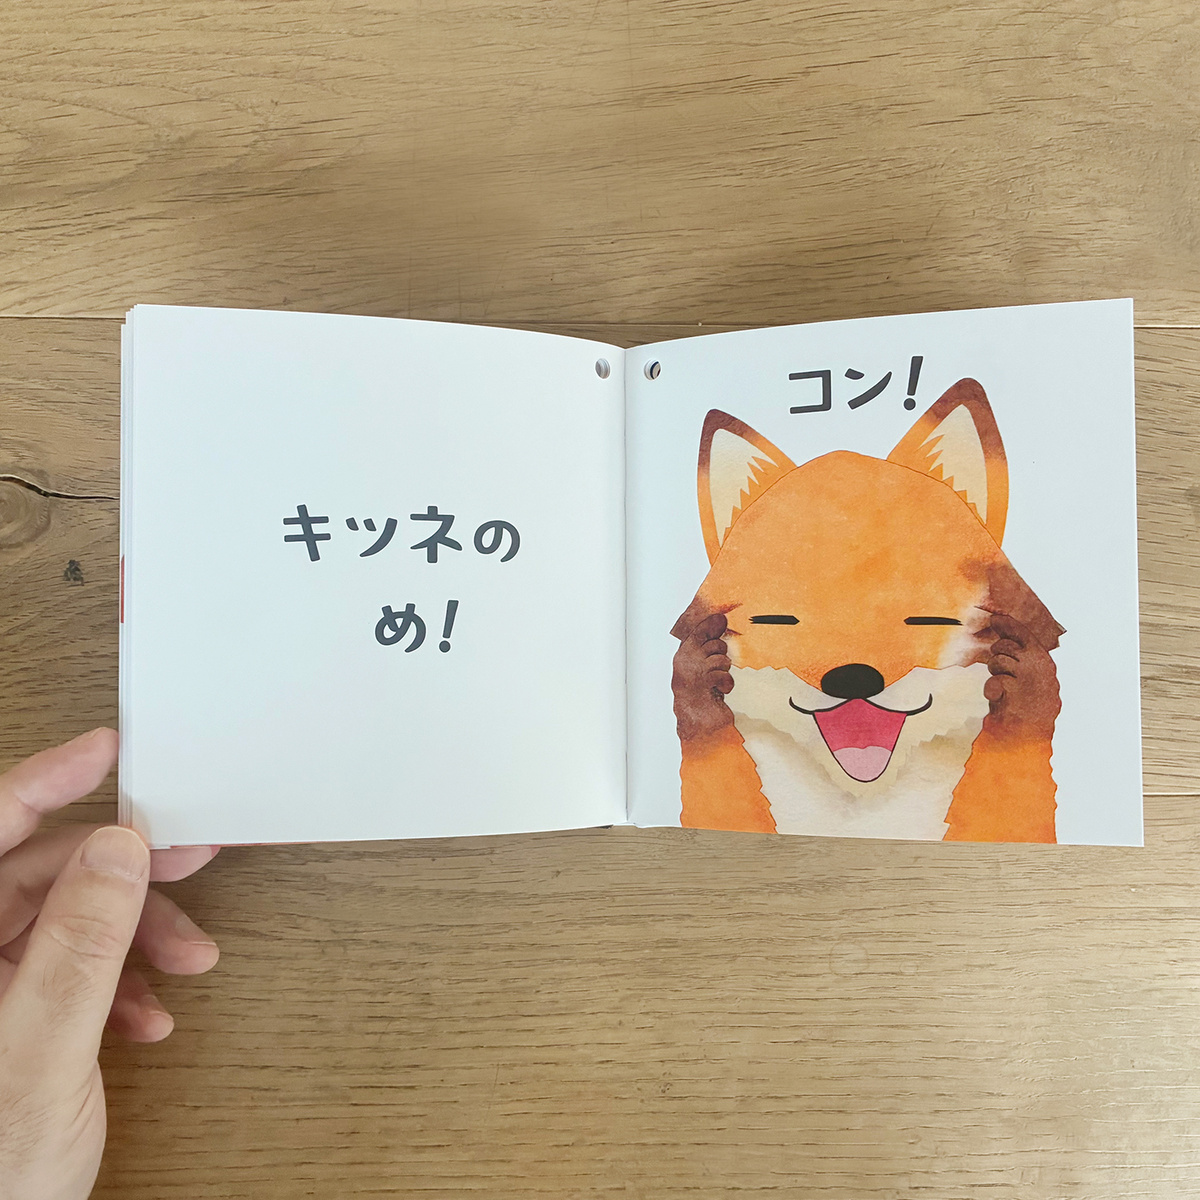 キツネの
め!
コン!